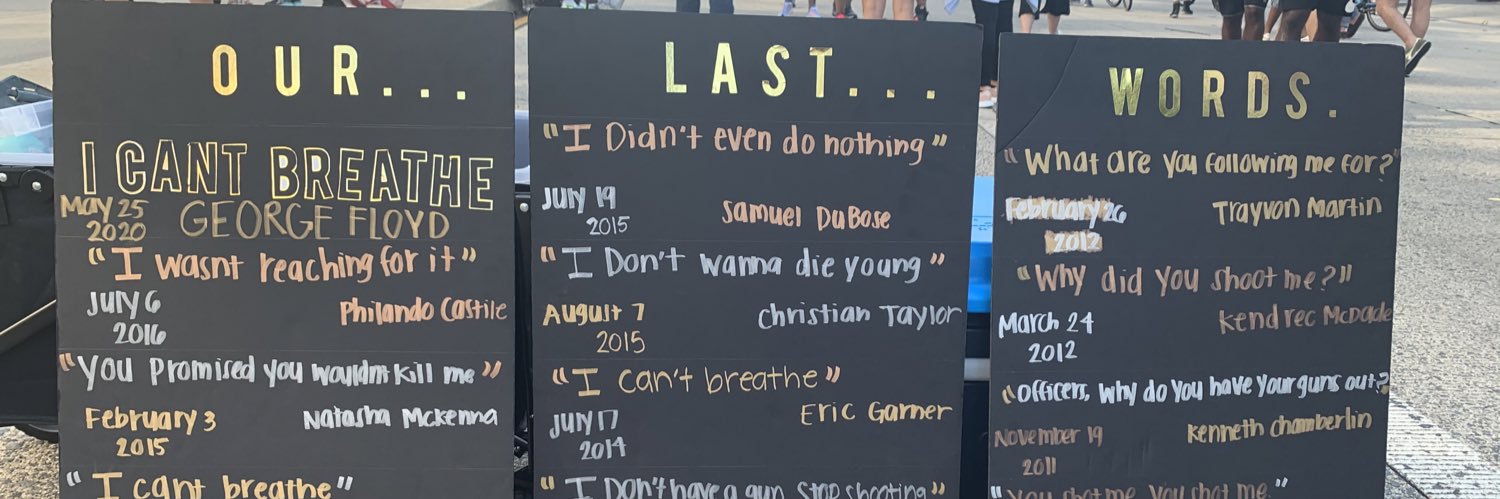 OUR...
I CANT BREATHE
MAY 25
2020
GEORGE FLOYD
"I wasnt reaching for it"
July 6
2016
Philando Castile
"You promised you wouldnt kill me"
February 3
2015
Natasha McKenna
"I cant breathe"
LAST...
"I Didn't even do nothing"
July 19
2015
Samuel DuBose
"I Don't wanna die young"
August 7
2015
Christian Taylor
"I can't breathe"
July 17
2014
Eric Garner
"I Don't have a gun stop shooting"
WORDS.
"What are you following me for?"
February 26
2012
Trayvon Martin
"Why did you shoot me?"
March 24
2012
Kendrec McDade
"Officers, why do you have your guns out?
November 19
2011
Kenneth Chamberlin
"You shot me, You shot me"